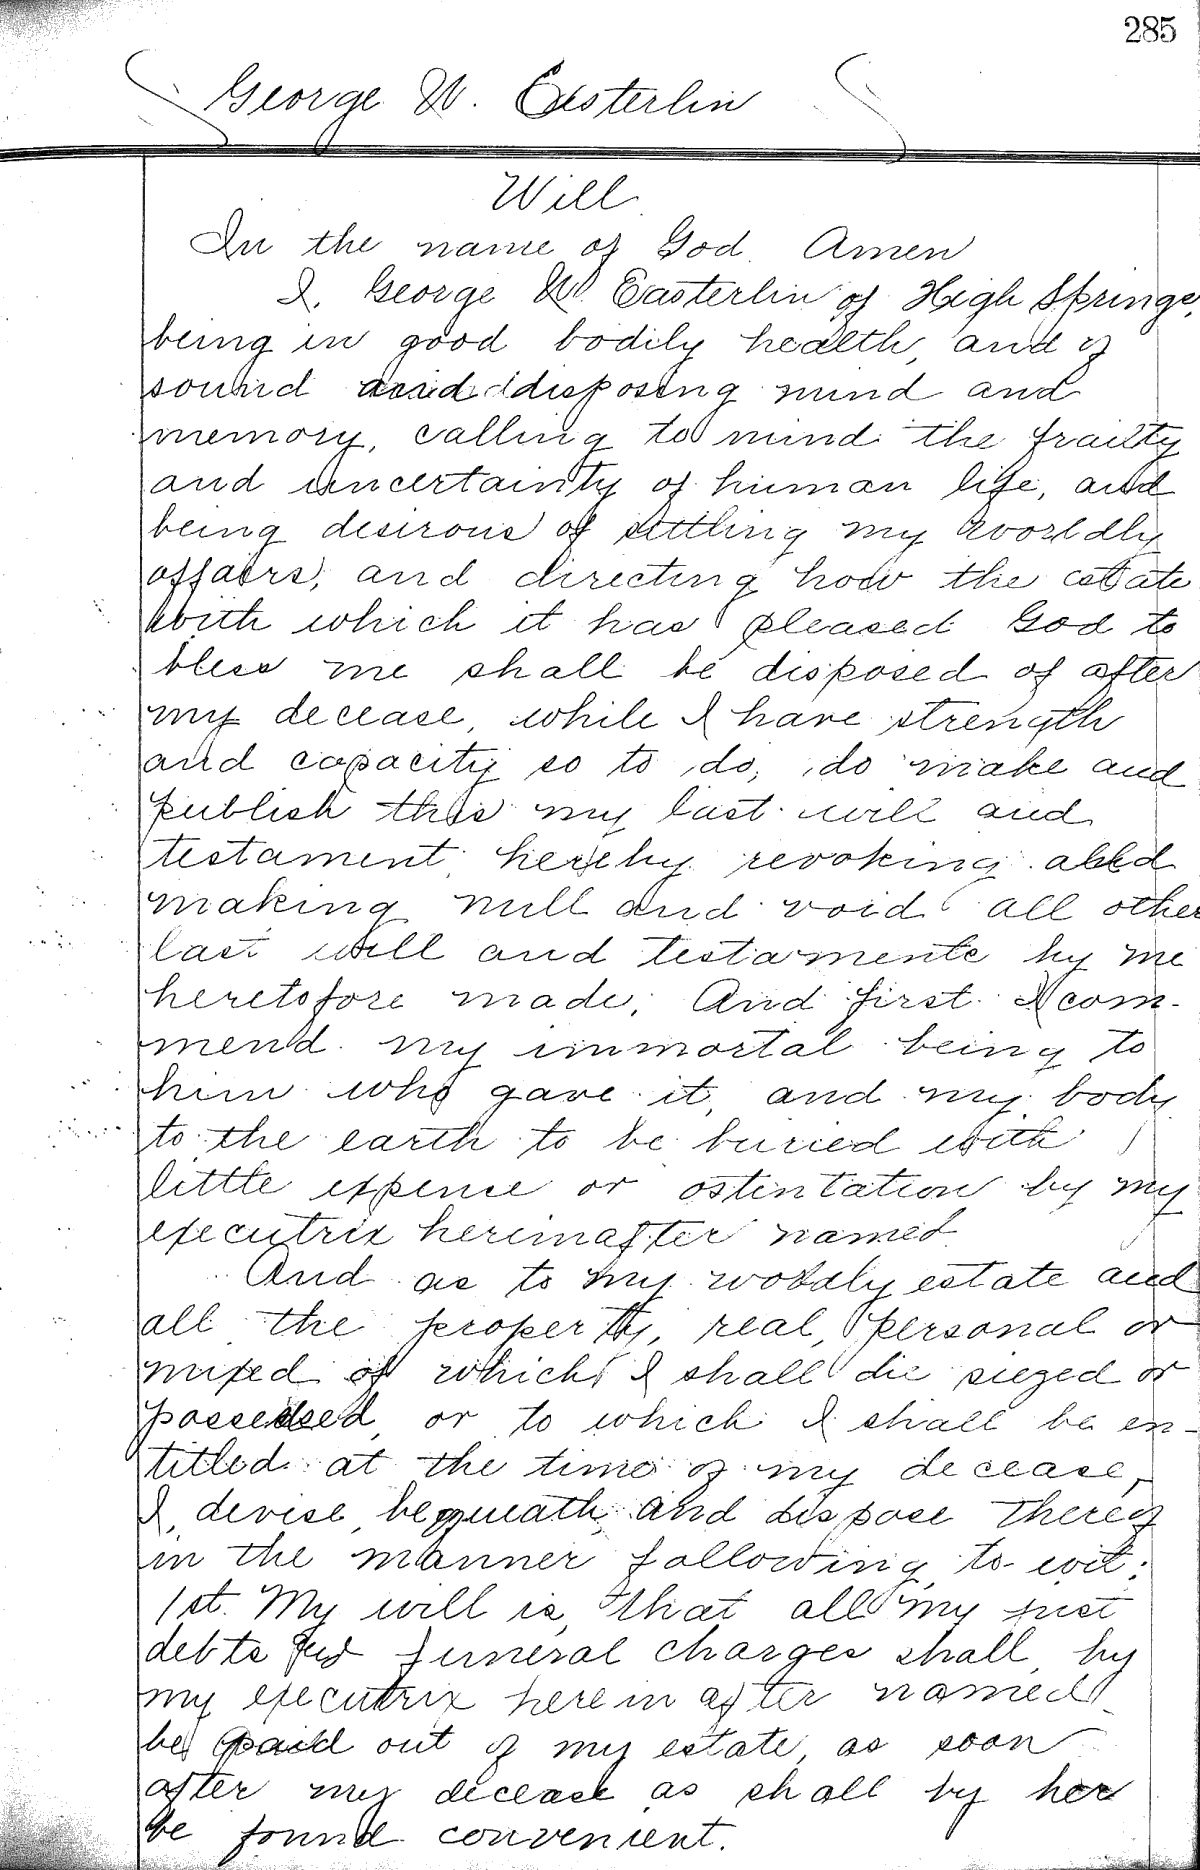 285
George W. Easterlin
Will
In the name of God. Amen
I, George W. Easterlin of High Springs,
being in good bodily health, and of
sound and disposing mind and
memory, calling to mind the frailty
and uncertainty of human life, and
being desirous of settling my worldly
affairs, and directing how the estate
with which it has pleased God to
bless me shall be disposed of after
my decease, while I have strength
and capacity so to do, do make and
publish this my last will and
testament hereby revoking and
making null and void all other
last will and testaments by me
heretofore made; And first I com-
mend my immortal being to
him who gave it, and my body
to the earth to be buried with
little expense or ostintation by my
executrix hereinafter named
And as to my worldly estate and
all the property, real, personal or
mixed of which I shall die siezed or
possessed, or to which I shall be en-
titled at the time of my decease,
I, devise, bequeath, and dispose thereof
in the manner following, to-wit:
1st. My will is, that all my just
debts and funeral charges shall, by
my executrix herein after named
be paid out of my estate, as soon
after my decease as shall by her
be found convenient.